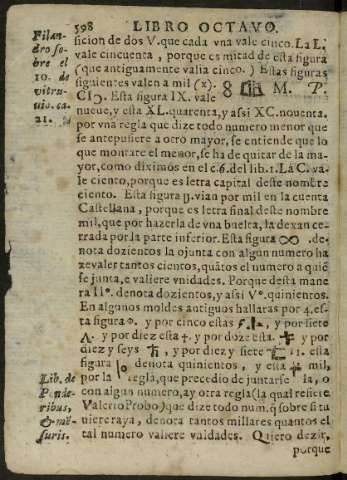 598 LIBRO OCTAVO.
Filan-
dro so-
bre el
10. de
vitru-
uio. ca.
21.
sicion de dos V. que cada vna vale cinco. La L.
vale cincuenta, porque es mitad de esta figura
(que antiguamente valia cinco.) Estas figuras
siguientes valen à mil (x). 8 M. P.
CIↃ. Esta figura IX. vale
nueue, y esta XL. quarenta, y assi XC. nouenta.
por vna regla que dize todo numero menor que
se antepusiere a otro mayor, se entiende que lo
que montare el menor, se ha de quitar de la ma-
yor, como diximos en el c. 6. del lib. 1. La C. va-
le ciento, porque es letra capital deste nombre
ciento. Esta figura vian por mil en la cuenta
Castellana, porque es letra final deste nombre
mil, que por hazerla de vna buelta, la dexan ce-
rrada por la parte inferior. Esta figura ∞ . de-
nota dozientos la qual junta con algun numero ha-
ze valer tantos cientos, quãtos el numero a quiẽ
se junta, e valiere vnidades. Porque desta mane-
ra IIº. denota dozientos, y assi Vº. quinientos.
En algunos moldes antiguos hallaras por 4. es-
ta figura . y por cinco estas . y por siete
Λ. y por diez esta +. y por doze esta. y por
diez y seys , y por diez y siete . esta
figura denota quinientos, y esta mil,
por la regla, que precedio de juntarse la, o
con algun numero, ay otra regla (la qual refiere
Valerio Probo) que dize todo num. q̃ sobre si tu
uiere raya, denota tantos millares quantos el
tal numero valiere vnidades. Quiero dezir,
porque
Lib. de
Ponde-
ribus,
& mẽ-
suris.